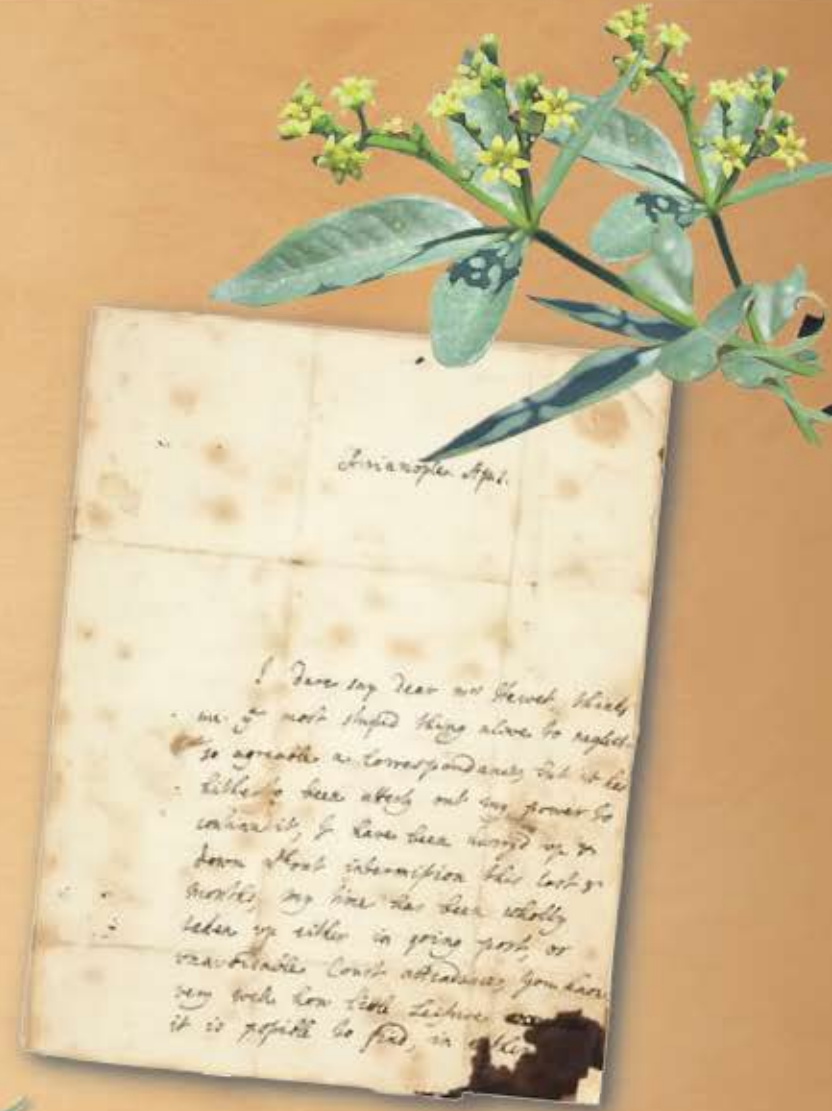 Adrianople Apr.
I dare say dear mrs Hewet thinks
me ye most stupid thing alive to neglect
so agreable a Correspondance, but it has
hitherto been utterly out my power to
continue it, I have been hurryd up &
down without intermission this last 8
months, my time has been wholly
taken up either in going post, or
unavoidable Court attendance, you know
very well how little Leisure
it is possible to find, in either